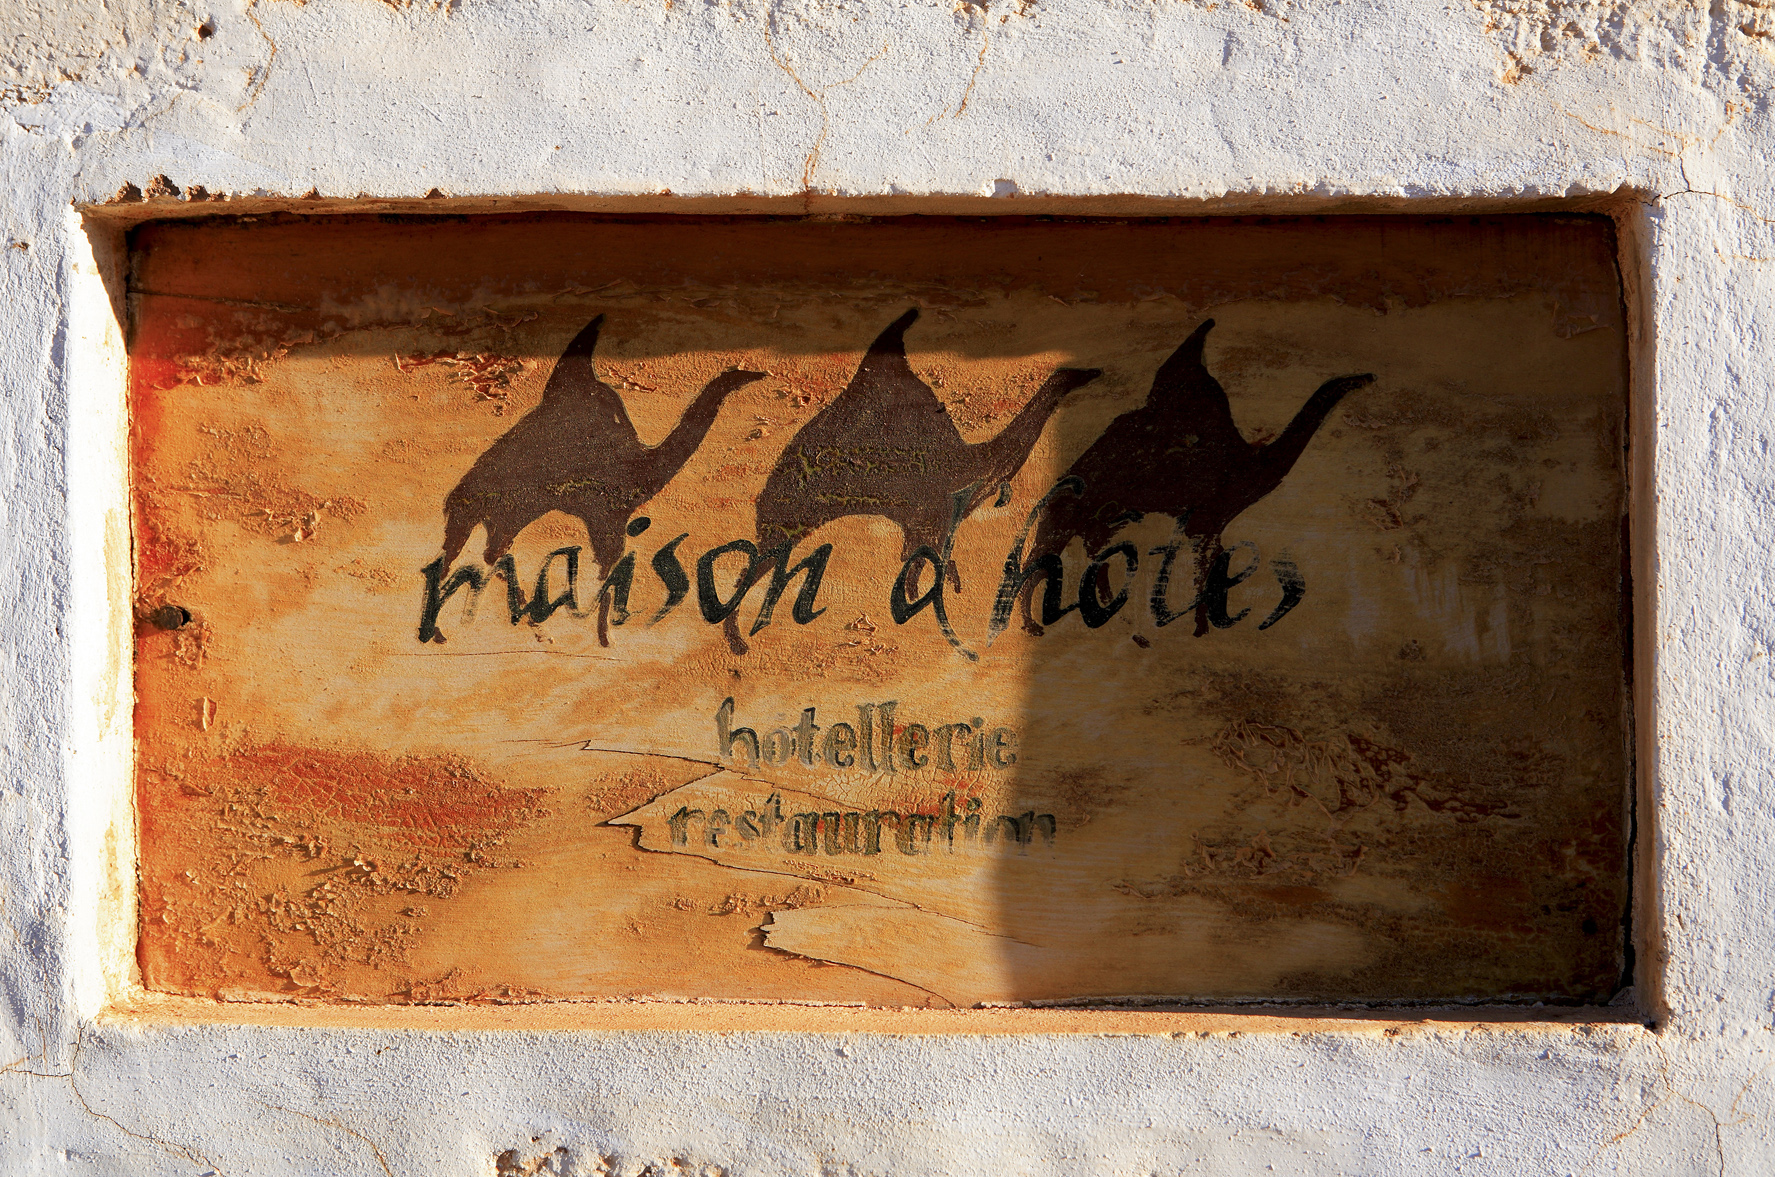 maison d'hôtes
hôtellerie
restauration